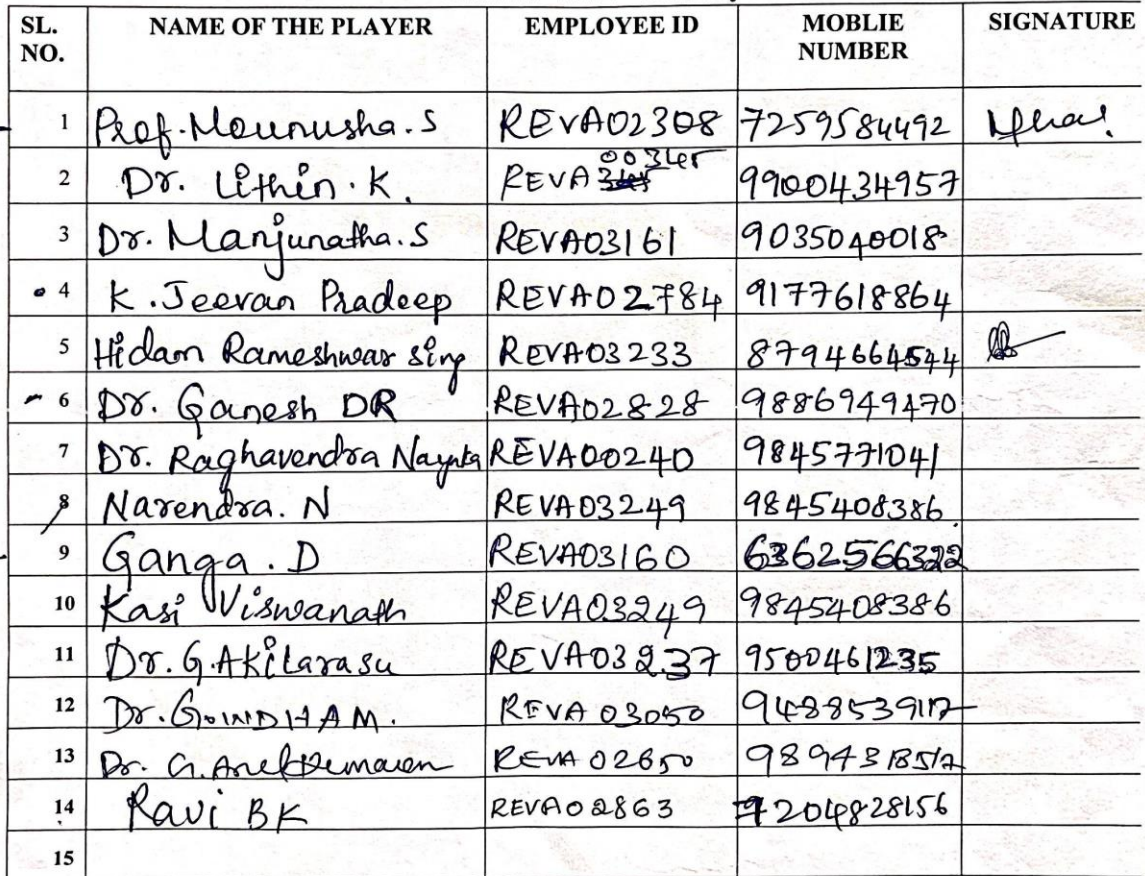 SL. NO. NAME OF THE PLAYER EMPLOYEE ID MOBLIE NUMBER SIGNATURE
1 Prof. Mounusha. S REVA02308 7259584492
2 Dr. Lithin. K. REVA 00345 9900434957
3 Dr. Manjunatha. S REVA03161 9035040018
4 K. Jeevan Pradeep REVA02784 9177618864
5 Hidam Rameshwar sing REVA03233 8794664544
6 Dr. Ganesh DR REVA02828 9886949470
7 Dr. Raghavendra REVA00240 9845771041
8 Narendra. N REVA03249 9845408386
9 Ganga. D REVA03160 6362566322
10 Kasi Viswanath REVA03249 9845408386
11 Dr. G. Akilarasu REVA03237 9500461235
12 Dr. REVA 03050
13 Dr. G. REVA 02650
14 Ravi BK REVA02863 7204828156
15